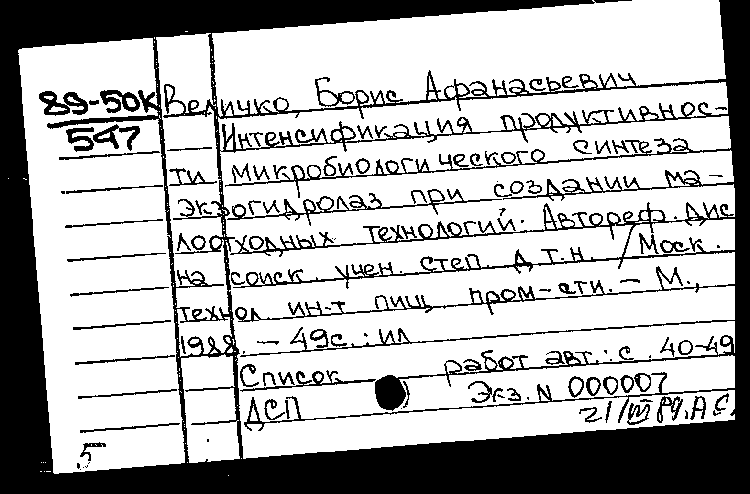 89-50К Величко, Борис Афанасьевич
547 Интенсификация продуктивнос-
ти микробиологического синтеза
экзогидролаз при создании ма-
лоотходных технологий: Автореф. Дис
на соиск. учен. степ. д.т.н. / Моск.
технол. ин-т пищ. пром-сти. – М.,
1988. – 49с.: ил
Список работ авт.: с. 40-49
ДСП Экз. N 000007
21/VII 89. А.С.
5